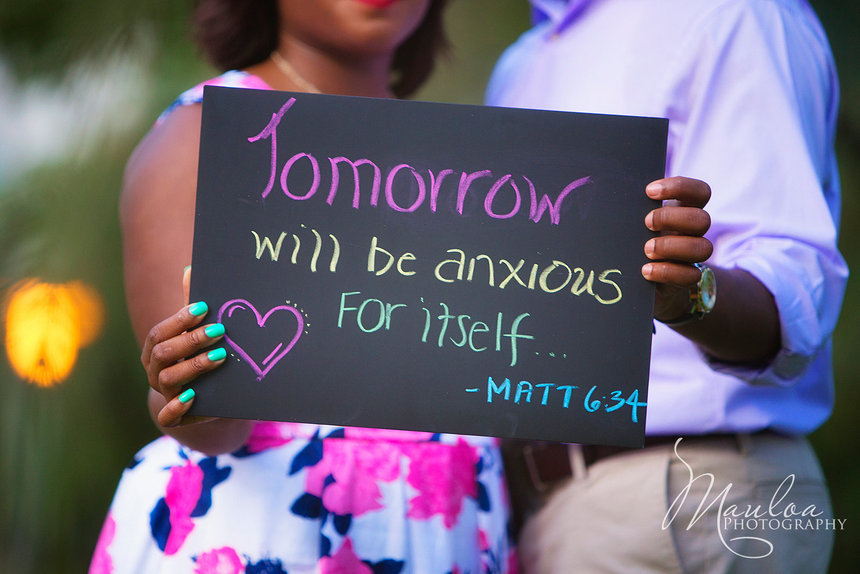 Tomorrow
will be anxious
For itself...
-MATT 6:34
Mauloa
PHOTOGRAPHY